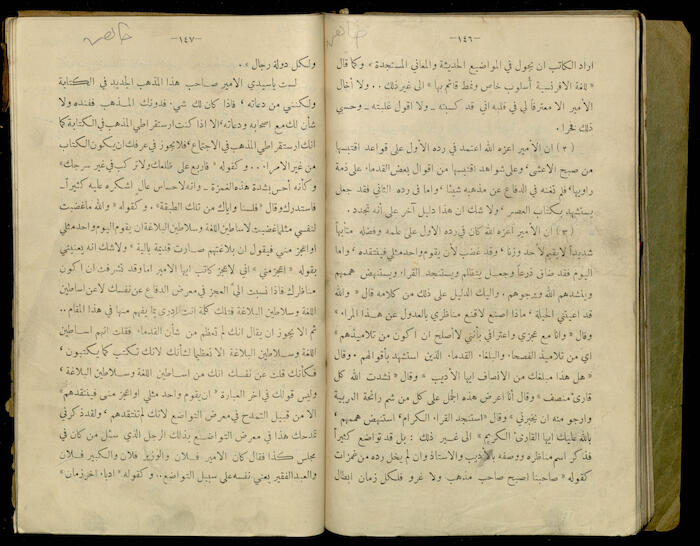 —١٤٦—
اراد الكاتب ان يجول في المواضيع الحديثة والمعاني المستجدة » وكما قال
« للغة الافرنسية أسلوب خاص ونمط قائم بها » الى غير ذلك .. ولا أخال
الأمير الا معترفاً لي في قلبه اني قد كسبته ـ ولا اقول غلبته ـ وحسبي
ذلك فخرا .
(٢) ان الأمير اعزه الله اعتمد في رده الأول على قواعد اقتبسها
من صبح الاعشى ، وعلى شواهد اقتبسها من اقوال بعض القدماء على ذمة
راويها ، فلم تغنه في الدفاع عن مذهبه شيئا ، واما في رده الثاني فقد جعل
يستشهد بكتاب العصر ، ولا شك ان هذا دليل آخر على أنه تجدد .
(٣) ان الأمير اعزه الله كان في رده الاول على علمه وفضله متأبهاً
شديداً لا يقيم لأحد وزنا ، وقد غضب لأن يقوم واحد مثلي فينتقده ، واما
اليوم فقد ضاق ذرعاً وجعل يتظلم ويستنجد القراء ويستنهض هممهم
ويناشدهم الله ويرجوهم . واليك الدليل على ذلك من كلامه قال « والله
قد اعيتني الحيلة ، ماذا اصنع لاقنع مناظري بالعدول عن هذا المراء »
وقال « وانا مع عجزي واعترافي بأنني لا أصلح ان اكون من تلاميذهم »
اي من تلاميذ الفصحاء والبلغاء القدماء الذين استشهد بأقوالهم . ووقال
« هل هذا مبلغك من الانصاف ايها الأديب » وقال « فنشدت الله كل
قارىء منصف » وقال أنا اعرض هذه الجمل على كل من شم رائحة العربية
وارجو منه ان يخبرني » وقال « استنجد القراء الكرام ، استنهض هممهم ،
بالله عليك ايها القارىء الكريم » الى غير ذلك : بل قد تواضع كثيراً
فذكر اسم مناظره ووصفه بالأديب والاستاذ وان لم يخل رده من غمزات
كقوله « صاحبنا اصبح صاحب مذهب ولا غرو فلكل زمان ابطال
—١٤٧—
ولكل دولة رجال » .
لست ياسيدي الامير صاحب هذا المذهب الجديد في الكتابة
ولكنني من دعاته ، فاذا كان لك شيء فدونك المذهب ففنده ولا
شأن لك مع اصحابه ودعاته ، الا اذا كنت ارستقراطي المذهب في الكتابة كما
انك ارستقراطي المذهب في الاجتماع ، فلا يجوز في عرفك ان يكون الكتاب
من غير الامراء ... وكقوله « فاربع على ظلعك ولا تركب في غير سرجك »
وكأنه أحس بشدة هذه الغمزة ـ وانه لاحساس عال اشكره عليه كثيراً ـ
فاستدرك وقال « فلسنا واياك من تلك الطبقة » . وكقوله « والله ماغضبت
لنفسي مثلما غضبت لاساطين اللغة وسلاطين البلاغة ان يقوم اليوم واحد مثلي
او اعجز مني فيقول ان بلاغتهم صارت قديمة بالية » ولا شك انه يعنيني
بقوله « اعجز مني » اني لأعجز كاتب ايها الامير اما وقد تشرفت ان اكون
مناظرك فاذا نسبت اليّ العجز في معرض الدفاع عن نفسك لا عن اساطين
اللغة وسلاطين البلاغة فتلك كلمة انت ادرى بما يفهم منها في هذا المقام ..
ثم الا يجوز ان يقال انك لم تعظم من شأن القدماء فقلت انهم اساطين
اللغة وسلاطين البلاغة الا تعظيما لشأنك لانك تكتب كما يكتبون ،
فكأنك قلت عن نفسك انك من اساطين اللغة وسلاطين البلاغة ،
وليس قولك في آخر العبارة « ان يقوم واحد مثلي او اعجز مني فينتقدهم »
الا من قبيل التمدح في معرض التواضع لانك لم تنتقدهم ، ولقد ذكرني
تمدحك هذا في معرض التواضع بذلك الرجل الذي سئل من كان في
مجلس كذا فقال كان الامير فلان والوزير فلان والكبير فلان
والعبد الفقير يعني نفسه على سبيل التواضع .. وكقوله « ادباء آخر زمان »